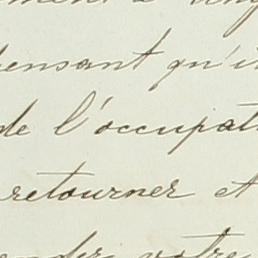 pensant qu'il
de l'occupat
retourner et
votre